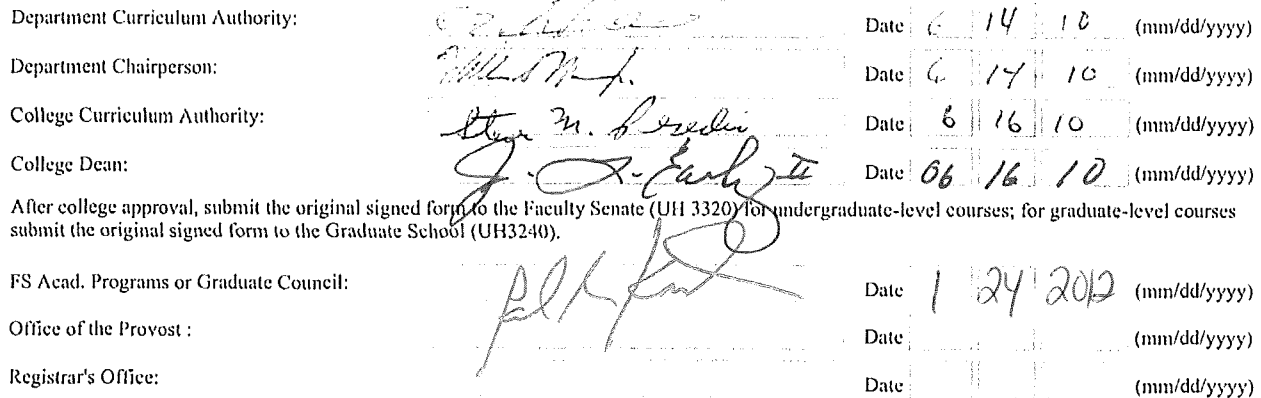 Department Curriculum Authority: Date 6 14 10 (mm/dd/yyyy)
Department Chairperson: Date 6 14 10 (mm/dd/yyyy)
College Curriculum Authority: Date 6 16 10 (mm/dd/yyyy)
College Dean: Date 06 16 10 (mm/dd/yyyy)
After college approval, submit the original signed form to the Faculty Senate (UH 3320) for undergraduate-level courses; for graduate-level courses
submit the original signed form to the Graduate School (UH3240).
FS Acad. Programs or Graduate Council: Date 1 24 2012 (mm/dd/yyyy)
Office of the Provost : Date (mm/dd/yyyy)
Registrar's Office: Date (mm/dd/yyyy)